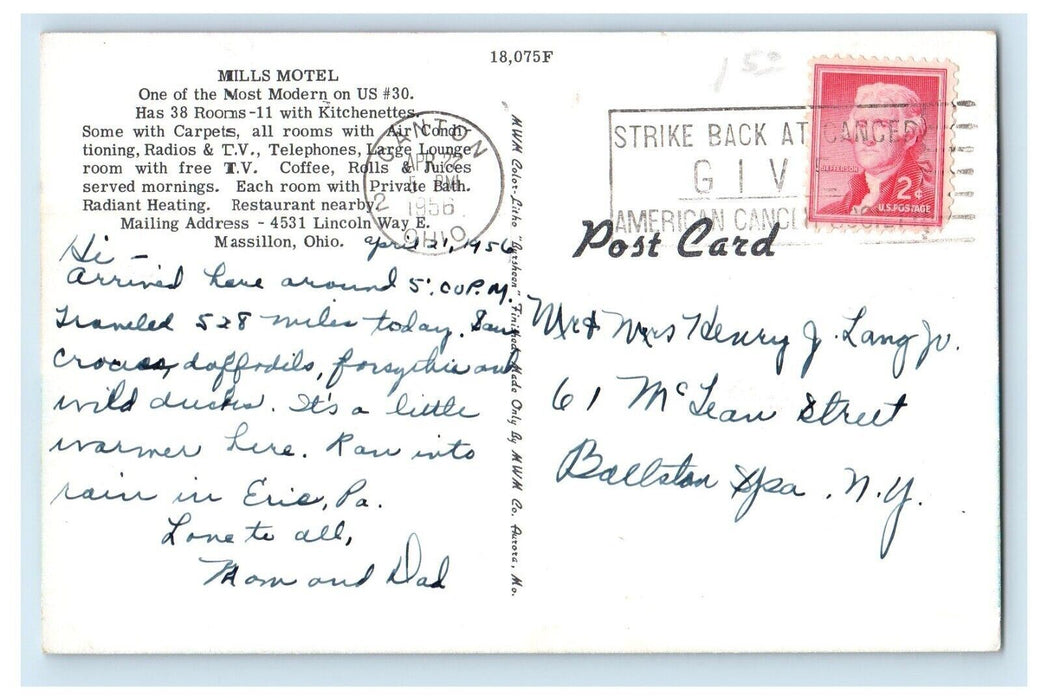 18,075F
MILLS MOTEL
One of the Most Modern on US #30.
Has 38 Rooms-11 with Kitchenettes.
Some with Carpets, all rooms with Air Condi-
tioning, Radios & T.V., Telephones, Large Lounge
room with free T.V. Coffee, Rolls & Juices
served mornings. Each room with Private Bath.
Radiant Heating. Restaurant nearby.
Mailing Address - 4531 Lincoln Way E.
Massillon, Ohio.
CANTON
2
APR 22
5 PM
1956
OHIO
April 21, 1956
Hi -
Arrived here around 5:00 P.M.
Traveled 528 miles today. Saw
crocus, daffodils, forsythia and
wild ducks. It's a little
warmer here. Ran into
rain in Erie, Pa.
Love to all,
Mom and Dad
MWM Color-Litho "Aqrsheen" Finished Made Only By MWM Co. Aurora, Mo.
152
STRIKE BACK AT CANCER
GIV
AMERICAN CANCE
JEFFERSON
2¢
U.S. POSTAGE
Post Card
Mr & Mrs Henry J. Lang Jr.
61 McLean Street
Ballston Spa. N.Y.